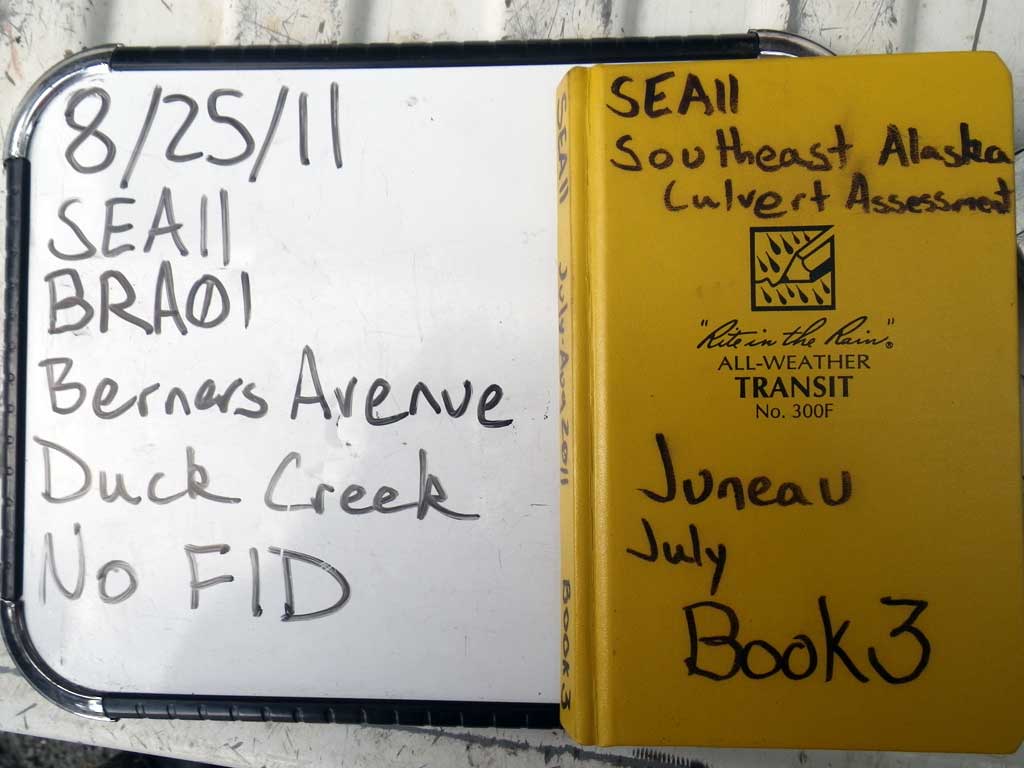 8/25/11
SEA11
BRA01
Berners Avenue
Duck Creek
No FID
SEA11 July-Aug 2011 Book 3
SEA11
Southeast Alaska
Culvert Assessment
"Rite in the Rain"®
ALL-WEATHER
TRANSIT
No. 300F
Juneau
July
Book 3